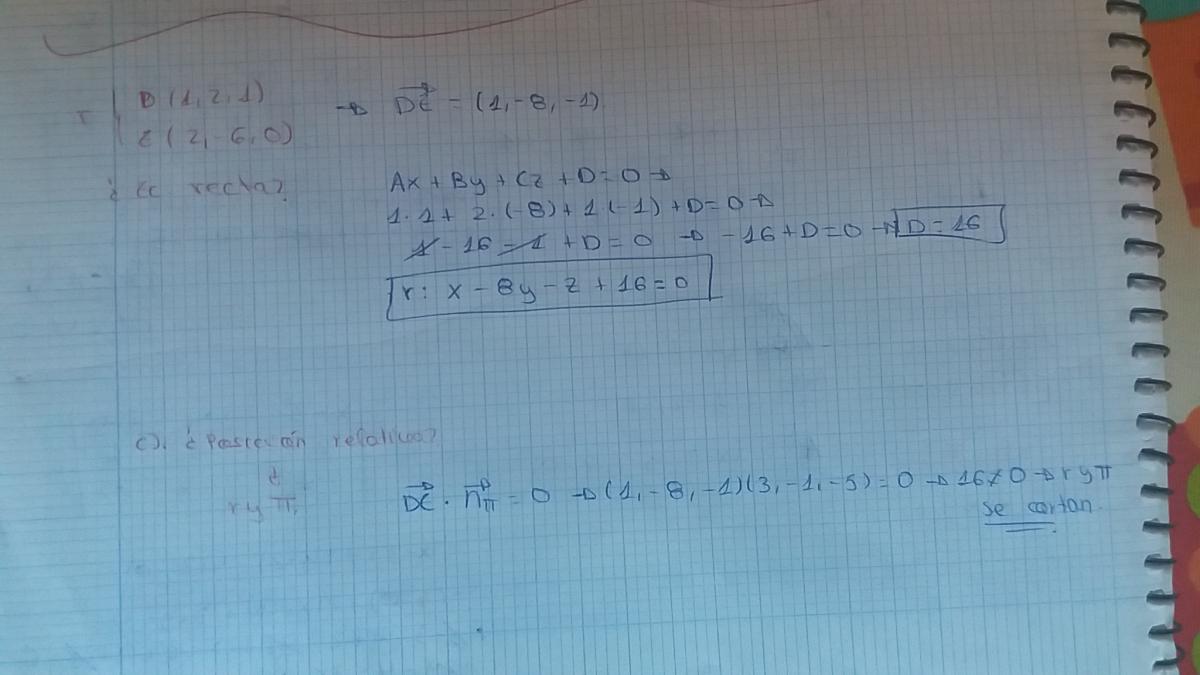 r { D (1, 2, 1)
E (2, -6, 0) → DE = (1, -8, -1)
¿ Ec recta?
Ax + By + Cz + D = 0 →
1·1 + 2·(-8) + 1(-1) + D = 0 →
1 - 16 - 1 + D = 0 → -16 + D = 0 → D = 16
r: x - 8y - z + 16 = 0
c). ¿ Posición relativa?
r y π
DE · nπ = 0 → (1, -8, -1)(3, -1, -5) = 0 → 16 ≠ 0 → r y π
se cortan.